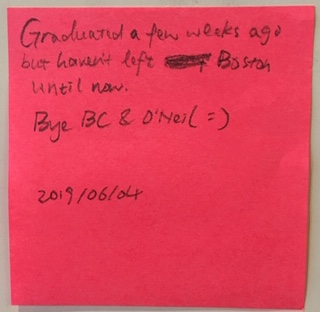 Graduated a few weeks ago
but haven't left Boston
until now.
Bye BC & O'Neil (=)
2019/06/04